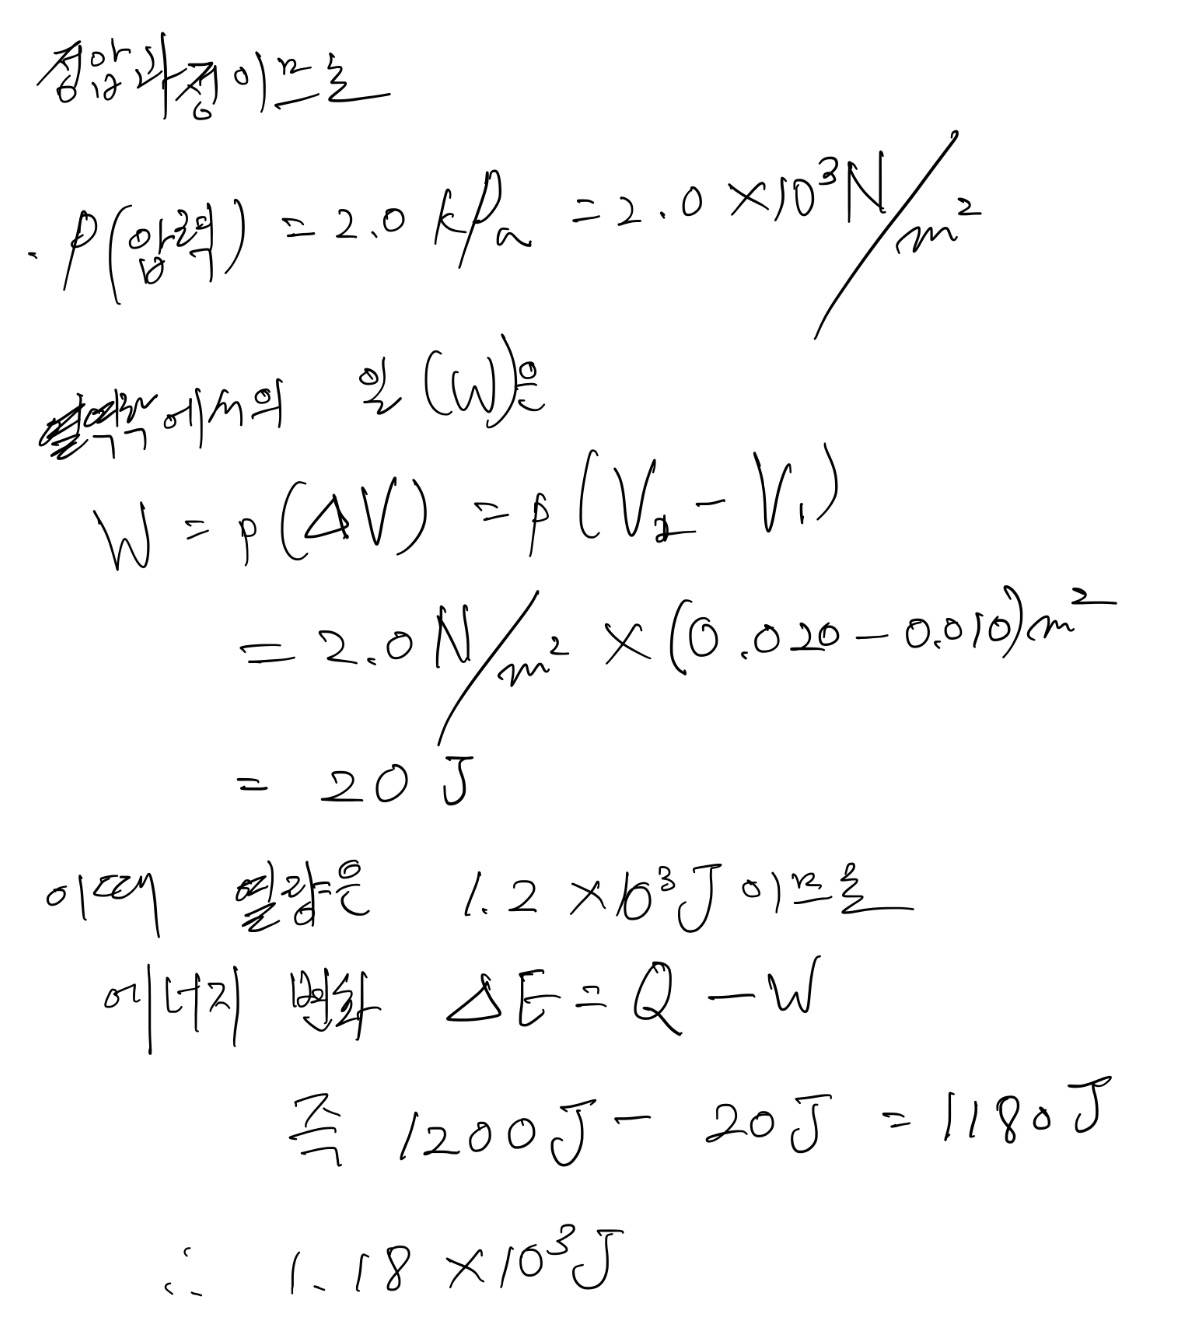 정압과정이므로
. P(압력) = 2.0 kPa = 2.0 ×10³N/m²
열역학에서의 일 (W)은
W = p(ΔV) = p(V₂ - V₁)
= 2.0 N/m² × (0.020 - 0.010)m²
= 20 J
이때 열량은 1.2 ×10³J 이므로
에너지 변화 ΔE = Q - W
즉 1200J - 20J = 1180J
∴ 1.18 ×10³J